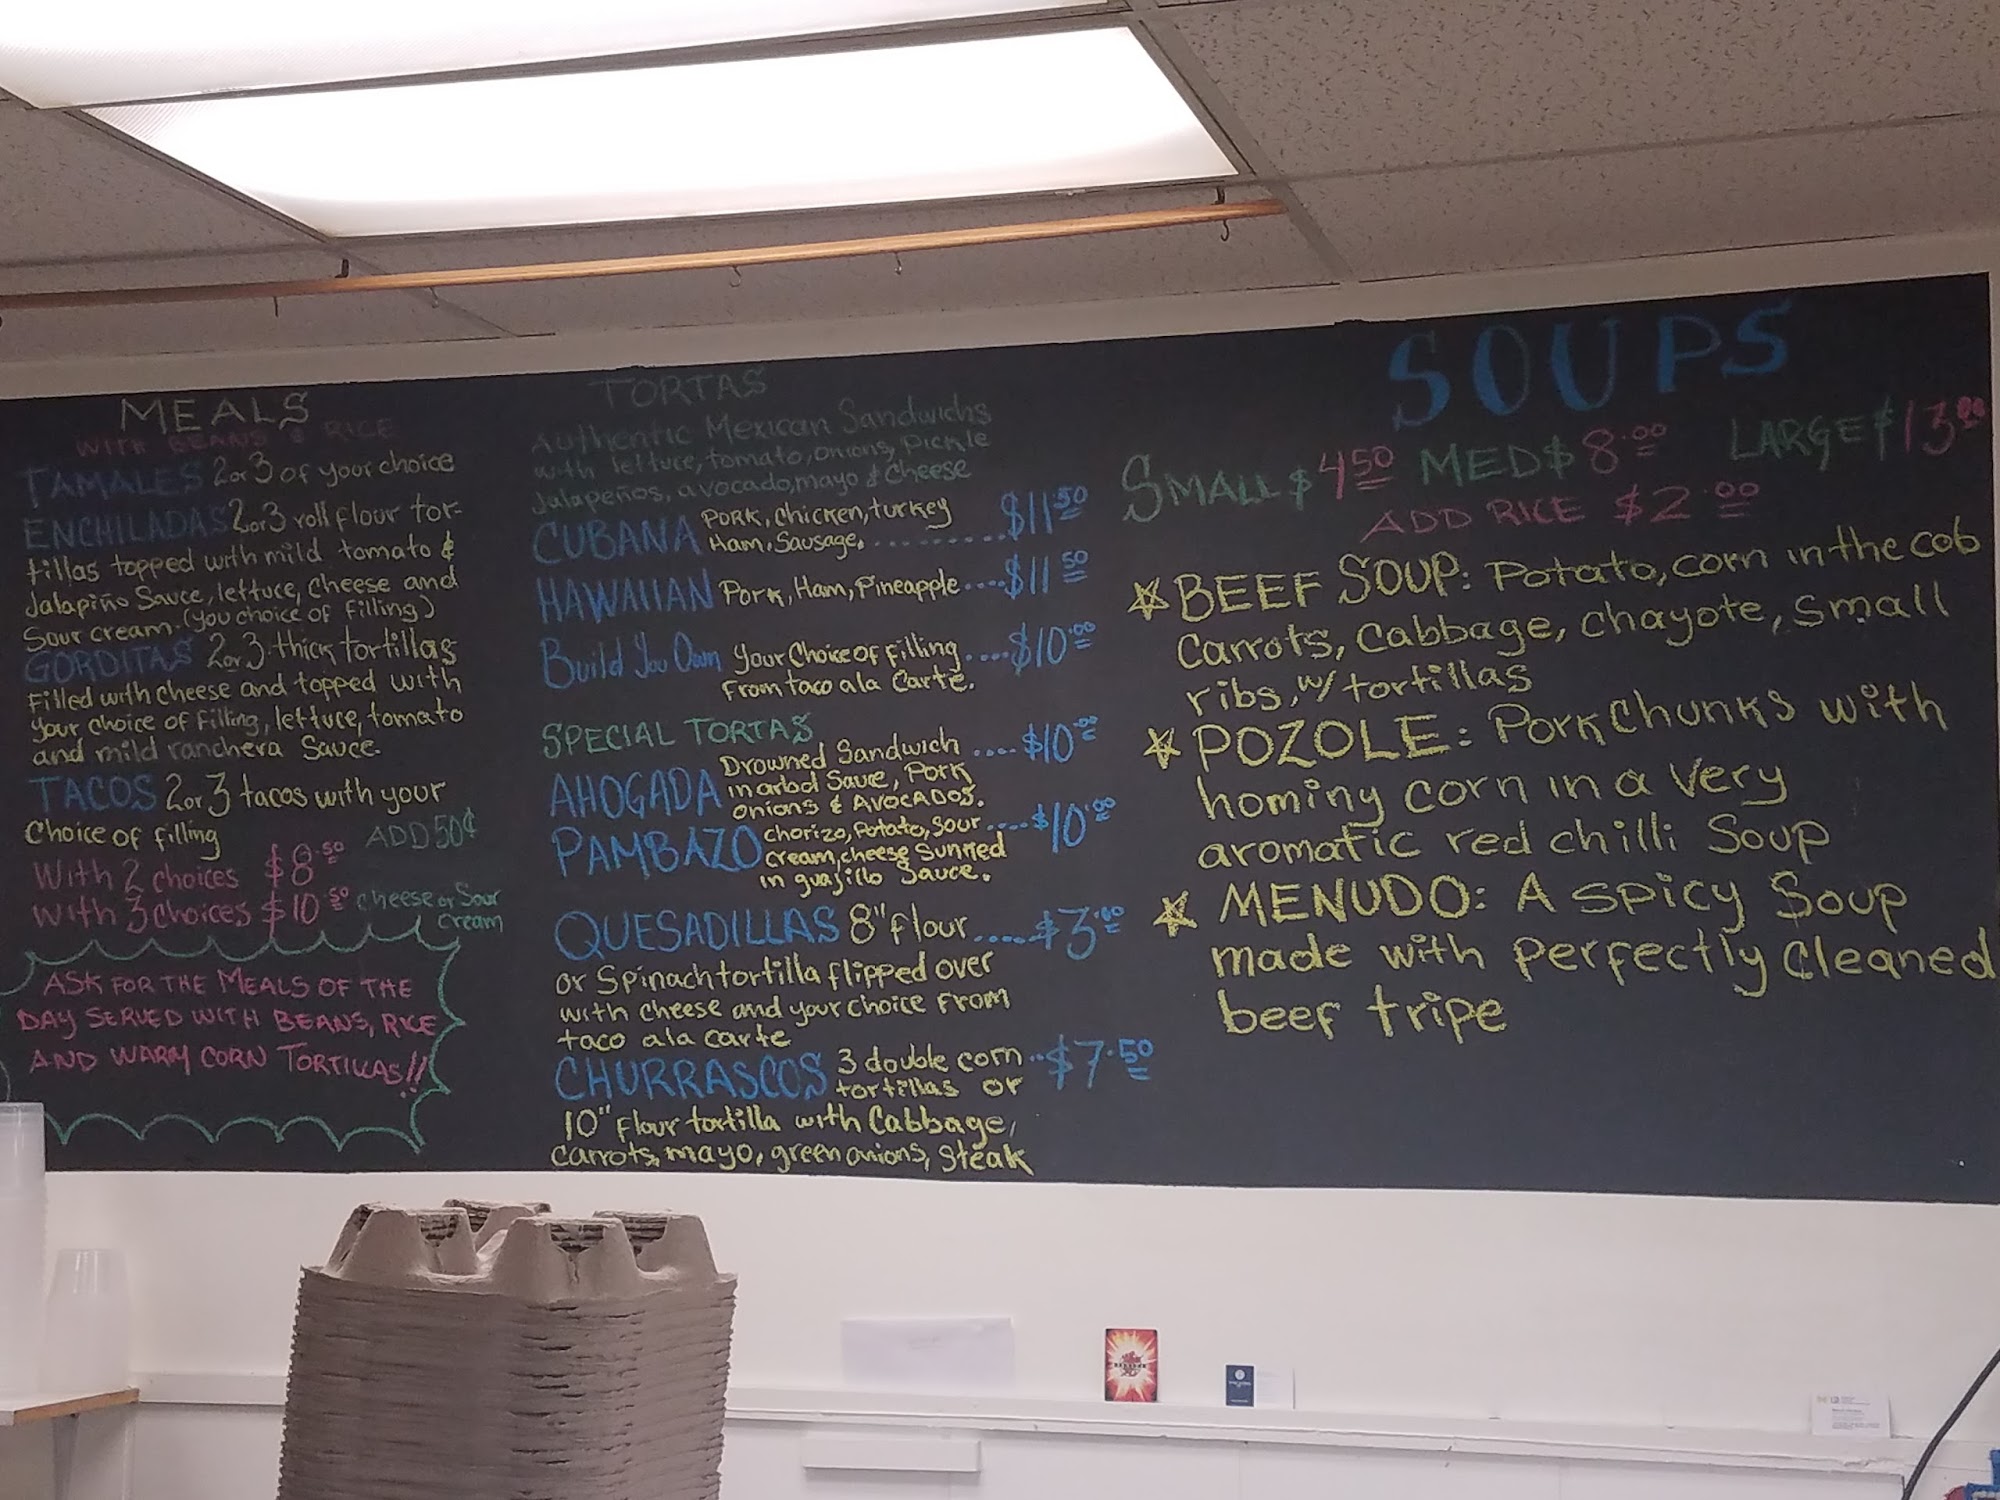 MEALS
WITH BEANS & RICE
TAMALES 2 or 3 of your choice
ENCHILADAS 2 or 3 roll flour tor-
tillas topped with mild tomato &
Jalapiño Sauce, lettuce, cheese and
Sour cream. (you choice of filling)
GORDITAS 2 or 3 thick tortillas
Filled with cheese and topped with
your choice of Filling, lettuce, tomato
and mild ranchera Sauce.
TACOS 2 or 3 tacos with your
Choice of filling
ADD 50¢
With 2 choices $8.50
With 3 choices $10.50 cheese or Sour
Cream
ASK FOR THE MEALS OF THE
DAY SERVED WITH BEANS, RICE
AND WARM CORN TORTILLAS!!
TORTAS
Authentic Mexican Sandwichs
with lettuce, tomato, onions, pickle
Jalapeños, avocado, mayo & Cheese
CUBANA PORK, chicken, turkey
Ham, Sausage, ......... $11.50
HAWAIIAN Pork, Ham, Pineapple .... $11.50
Build You Own Your Choice of filling .... $10.00
From taco ala Carte.
SPECIAL TORTAS
AHOGADA Drowned Sandwich .... $10.00
in arbol Sauce, Pork
onions & AVOCADOS.
PAMBAZO chorizo, Potato, sour .... $10.00
cream, cheese Sunrred
in guajillo Sauce.
QUESADILLAS 8" flour ..... $3.00
or Spinach tortilla flipped over
with cheese and your choice From
taco ala carte
CHURRASCOS 3 double corn .. $7.50
tortillas or
10" Flour tortilla with Cabbage,
carrots, mayo, green onions, steak
SOUPS
SMALL $4.50 MED $8.00 LARGE $13.00
ADD RICE $2.00
BEEF SOUP: Potato, corn in the cob
Carrots, Cabbage, chayote, small
ribs, w/ tortillas
POZOLE: Pork Chunks with
hominy corn in a very
aromatic red chilli Soup
MENUDO: A spicy Soup
made with perfectly cleaned
beef tripe